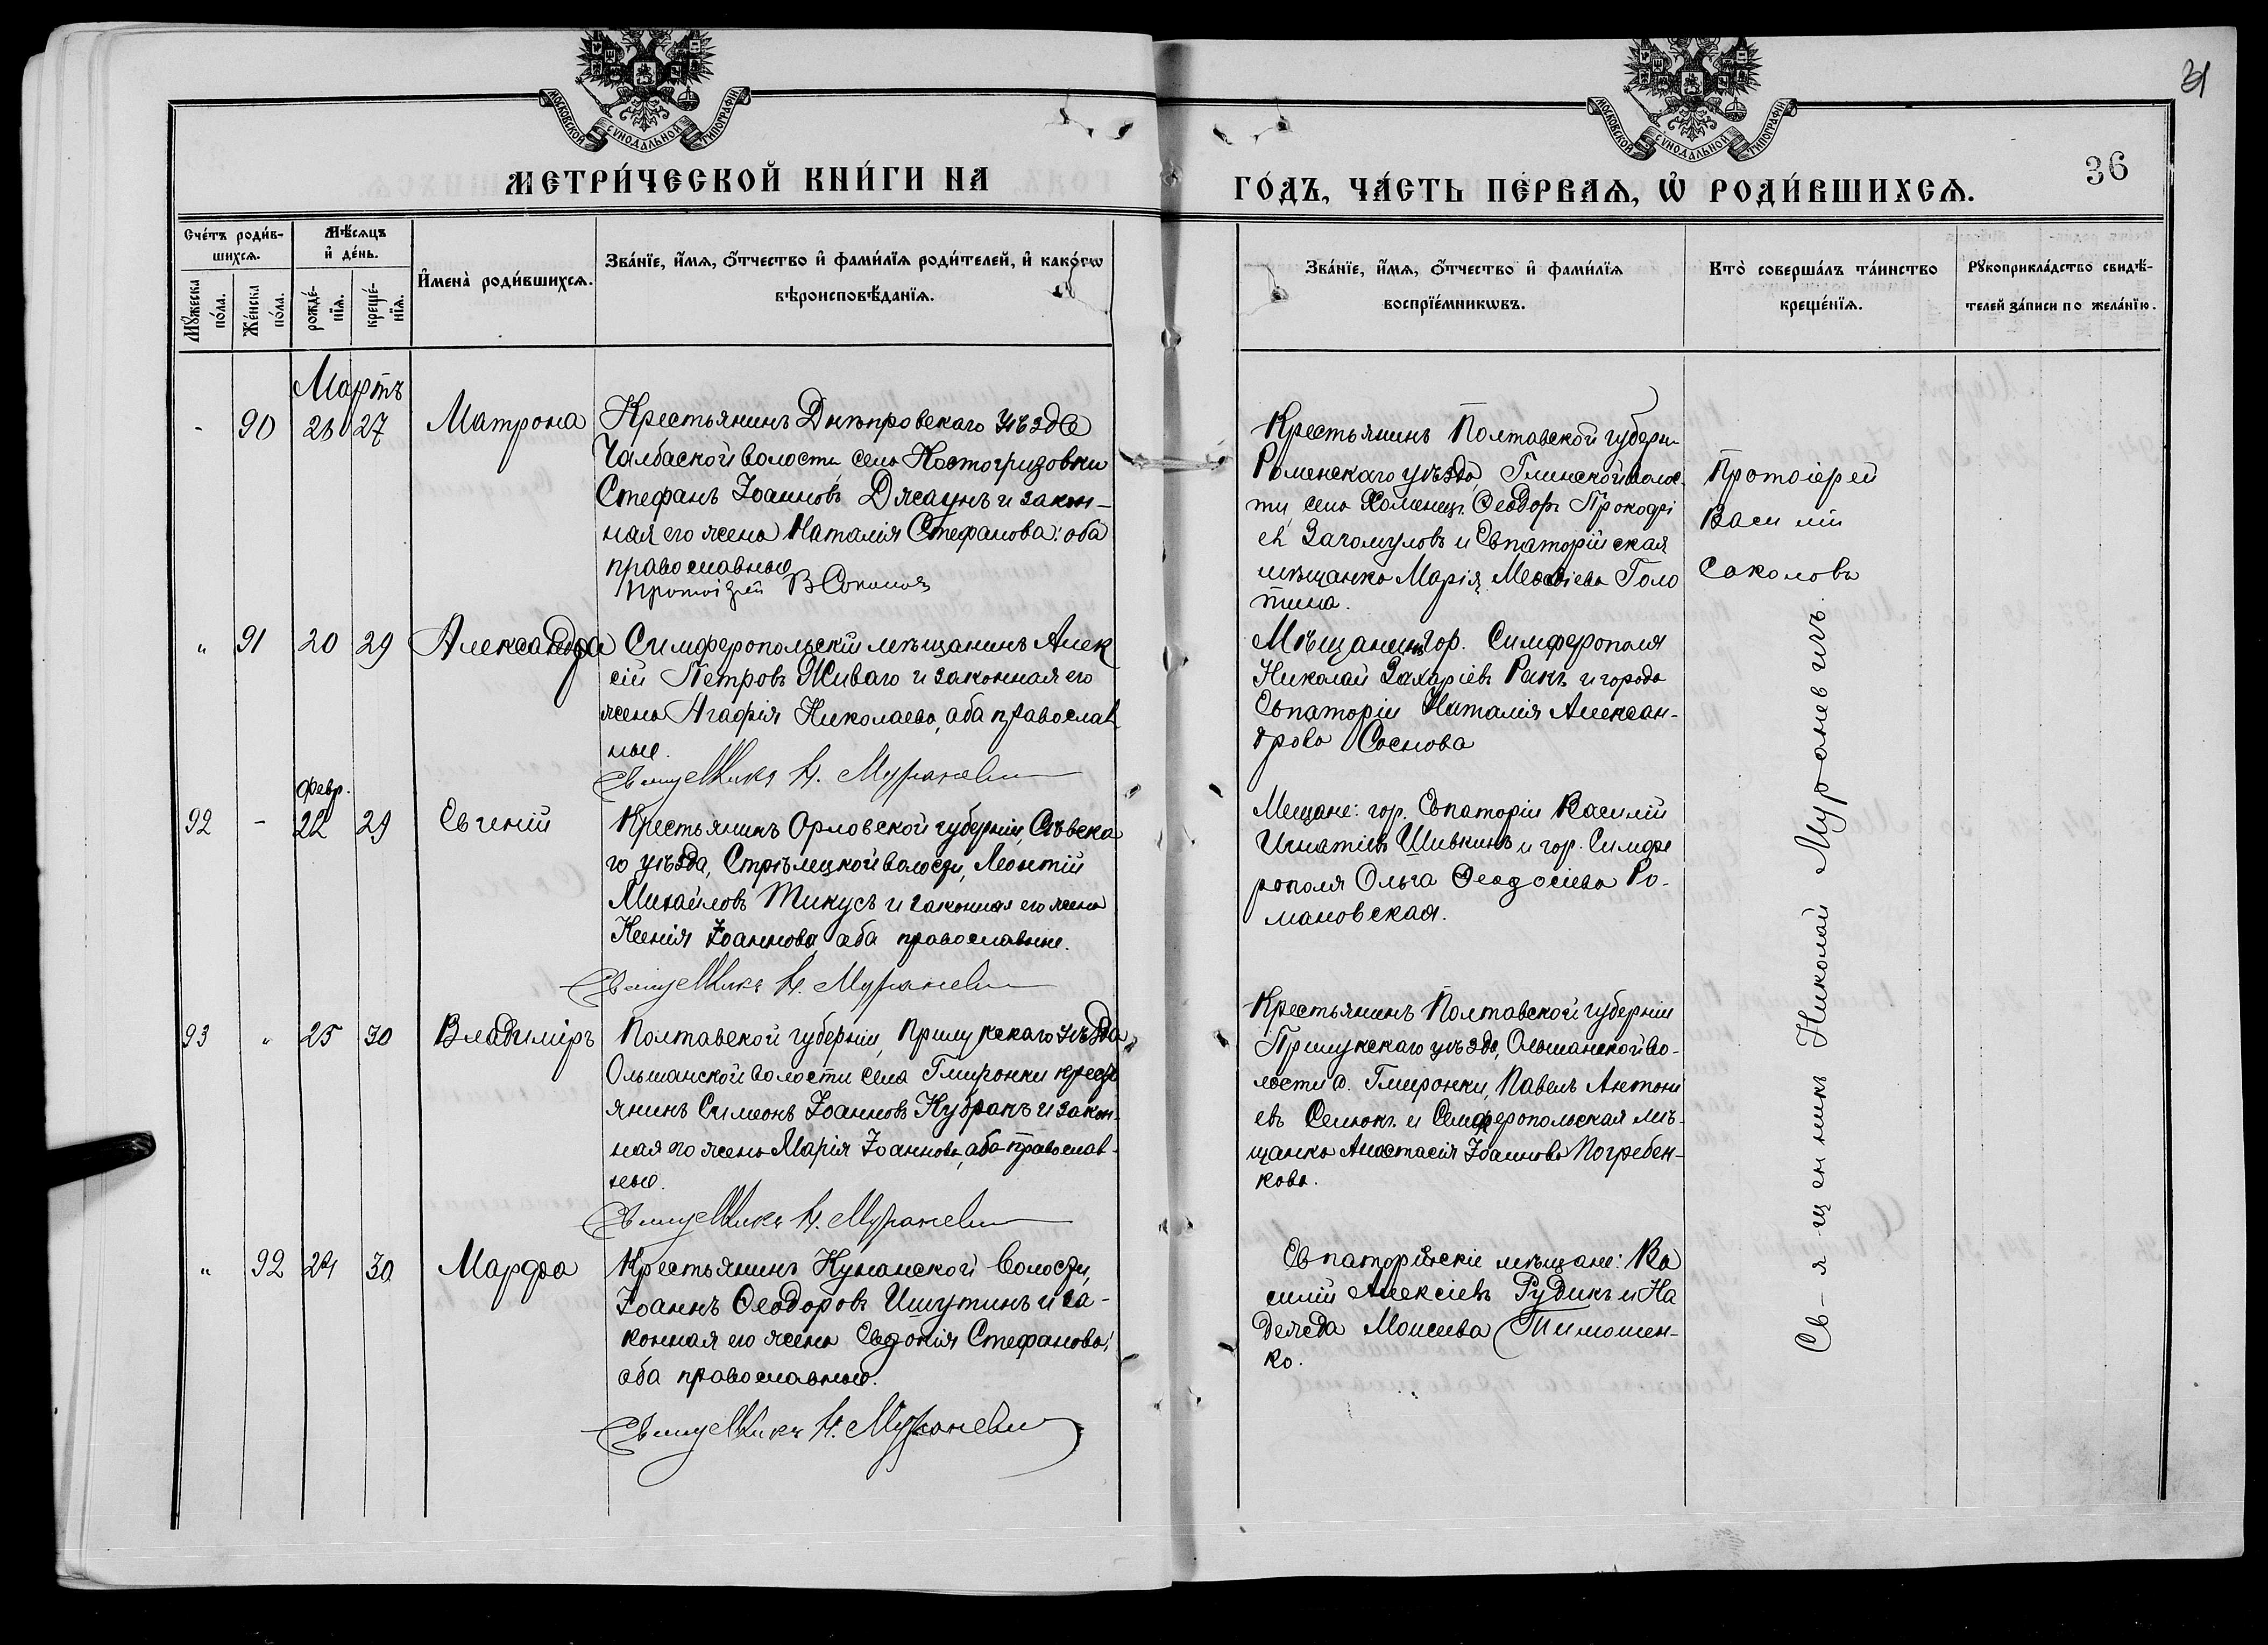 31
36
МОСКОВСКОЙ СѴНОДАЛЬНОЙ ТИПОГРАФІИ
МОСКОВСКОЙ СѴНОДАЛЬНОЙ ТИПОГРАФІИ
МЕТРИ́ЧЕСКОЙ КНИ́ГИ НА
ГО́ДЪ, ЧА́СТЬ ПЕ́РВАѦ, Ѡ҆ РОДИ́ВШИХСѦ.
Сче́тъ роди́в-
шихсѧ.
Мꙋ́жеска
по́ла.
Же́нска
по́ла.
Мѣ́сѧцъ
и҆ де́нь.
рожде́-
нїѧ.
креще́-
нїѧ.
И҆мена̀ роди́вшихсѧ.
Зва́нїе, и҆́мѧ, ѻ҆́тчество и҆ фами́лїѧ роди́телей, и҆ како́гѡ
вѣроисповѣ́данїѧ.
Зва́нїе, и҆́мѧ, ѻ҆́тчество и҆ фами́лїѧ
воспрїе́мникѡвъ.
Кто̀ соверша́лъ та́инство
креще́нїѧ.
Рꙋкоприкла́дство свидѣ́-
телей за́писи по жела́нїю.
Мартъ
- 90 26 27 Матрона
Крестьянинъ Днѣпровскаго уѣзда
Чалбаской волости села Костогризовки
Стефанъ Іоанновъ Джаунъ и закон-
ная его жена Наталія Стефанова: оба
православные
Протоіерей В Соколовъ
Крестьянинъ Полтавской губерн
Роменскаго уѣзда, Глинской волос-
ти, села Хоменец Ѳеодоръ Прокофі
евъ Загомуловъ и Евпаторійская
мѣщанка Марія Моѳіева Голо
тина.
Протоіерей
Василій
Соколовъ
" 91 20 29 Александра
Симферопольскій мѣщанинъ Алек
сій Петровъ Живаго и законная его
жена Агафія Николаева, оба православ
ные.
Священникъ Н. Мураневичъ
Мѣщанинъ гор. Симферополя
Николай Захаріевъ Ракъ и города
Евпаторіи Наталія Алексан-
дрова Соснова
февр.
92 - 22 29 Евгеній
Крестьянинъ Орловской губерніи, Сѣвска
го уѣзда, Стрѣлецкой волости, Леонтій
Михайловъ Тикусъ и законная его жена
Ксенія Іоаннова, оба православные.
Священникъ Н. Мураневичъ
Мещане: гор. Евпаторіи Василій
Игнатіевъ Шивкинъ и гор. Симфе
рополя Ольга Ѳеодосіева Ро-
мановская.
93 " 25 30 Владиміръ
Полтавской губерніи, Прилукскаго уѣзда,
Ольшанской волости села Гмиронки крест
янинъ Симеонъ Іоанновъ Кубракъ и закон-
ная его жена Марія Іоаннова, оба православ-
ные.
Священникъ Н. Мураневичъ
Крестьянинъ Полтавской губерніи
Прилукскаго уѣзда, Ольшанской во-
лости с. Гмиронки, Павелъ Антони
евъ Селюкъ и Симферопольская мѣ-
щанка Анастасія Іоаннова Погребен-
кова.
" 92 24 30 Марфа
Крестьянинъ Кунанской волости,
Іоаннъ Ѳеодоровъ Ишутинъ и за-
конная его жена Евдокія Стефанова:
оба православные.
Священникъ Н. Мураневичъ
Евпаторійскіе мѣщане: Ва
силій Алексіевъ Рудикъ и На
дежда Моисеева Тимошен-
ко.
Св-я-щенникъ Николай Мураневичъ.